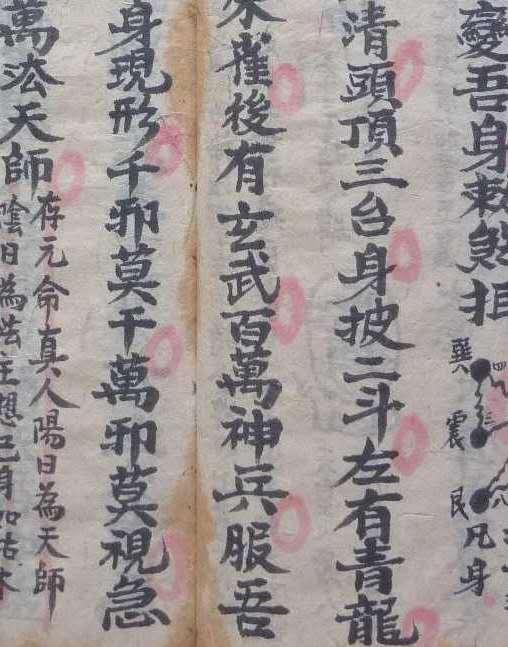 變吾身敕煞担
巽 震 艮
四 三 六
凡身
清頭頂三台身披二斗左有青龍
朱雀後有玄武百萬神兵服吾
身現形千邪莫干萬邪莫視急
萬法天師
存元命真人陽日為天師
陰日為法主想己身如枯木